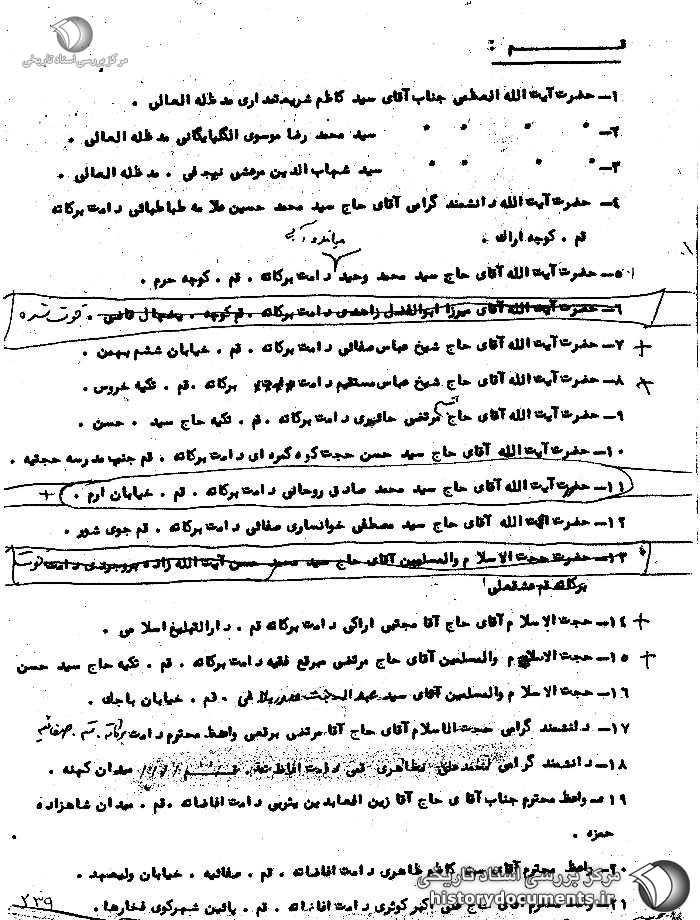 مرکز بررسی اسناد تاریخی
قم :
۱ـ حضرت آیت الله العظمی جناب آقای سید کاظم شریعتمداری مد ظله العالی .
۲ـ " " " " سید محمد رضا موسوی الگلپایگانی مد ظله العالی .
۳ـ " " " " سید شهاب الدین مرعشی نجفی . مد ظله العالی .
۴ـ حضرت آیت الله دانشمند گرامی آقای حاج سید محمد حسین علامه طباطبائی دامت برکاته
قم . کوچه ارک .
۵ـ حضرت آیت الله آقای حاج سید محمد وحید دامت برکاته . قم . کوچه حرم .
۶ـ حضرت آیت الله آقای میرزا ابوالفضل زاهدی دامت برکاته . قم کوچه . یخچال قاضی . فوت شده
۷ـ حضرت آیت الله آقای حاج شیخ عباس صفائی دامت برکاته . قم . خیابان ششم بهمن . +
۸ـ حضرت آیت الله آقای حاج شیخ عباس مستقیم دامت برکاته . قم . تکیه خروس .
۹ـ حضرت آیت الله آقای حاج مرتضی حائیری دامت برکاته . قم . تکیه حاج سید . حسن .
۱۰ـ حضرت آیت الله آقای حاج سید حسن حجت کوه کمره ای دامت برکاته . قم جنب مدرسه حجتیه .
۱۱ـ حضرت آیت الله آقای حاج سید محمد صادق روحانی دامت برکاته . قم . خیابان ارم . +
۱۲ـ حضرت آیت الله آقای حاج سید مصطفی خوانساری صفائی دامت برکاته . قم جوی شور .
۱۳ـ حضرت حجت الاسلام والمسلمین آقای حاج سید محمد حسن آیت الله زاده بروجردی دامت
برکاته قم عشقعلی
۱۴ـ حجت الاسلام آقای حاج آقا مجتبی اراکی دامت برکاته قم . دارالتبلیغ اسلامی . +
۱۵ـ حجت الاسلام والمسلمین آقای حاج مرتضی مبرقع فقیه دامت برکاته . قم . تکیه حاج سید حسن +
۱۶ـ حجت الاسلام والمسلمین آقای سید عبدالحجت صدر بلاغی . قم . خیابان باجک .
۱۷ـ دانشمند گرامی حجت الاسلام آقای حاج آقا مرتضی برقعی واعظ محترم دامت برکاته . قم . صفائیه
۱۸ـ دانشمند گرامی محمدعلی مظاهری قمی دامت افاضاته . قم میدان کهنه .
۱۹ـ واعظ محترم جناب آقای حاج آقا زین العابدین یثربی دامت افاضاته . قم . میدان شاهزاده
حمزه .
۲۰ـ واعظ محترم آقای سید کاظم طاهری دامت افاضاته . قم . صفائیه . خیابان ولیعهد .
۲۱ـ واعظ محترم آقای حاج علی اکبر کوثری دامت افاضاته . قم . پائین شهر کوی فخارها .
مرکز بررسی اسناد تاریخی
historydocuments.ir
۲۳۹